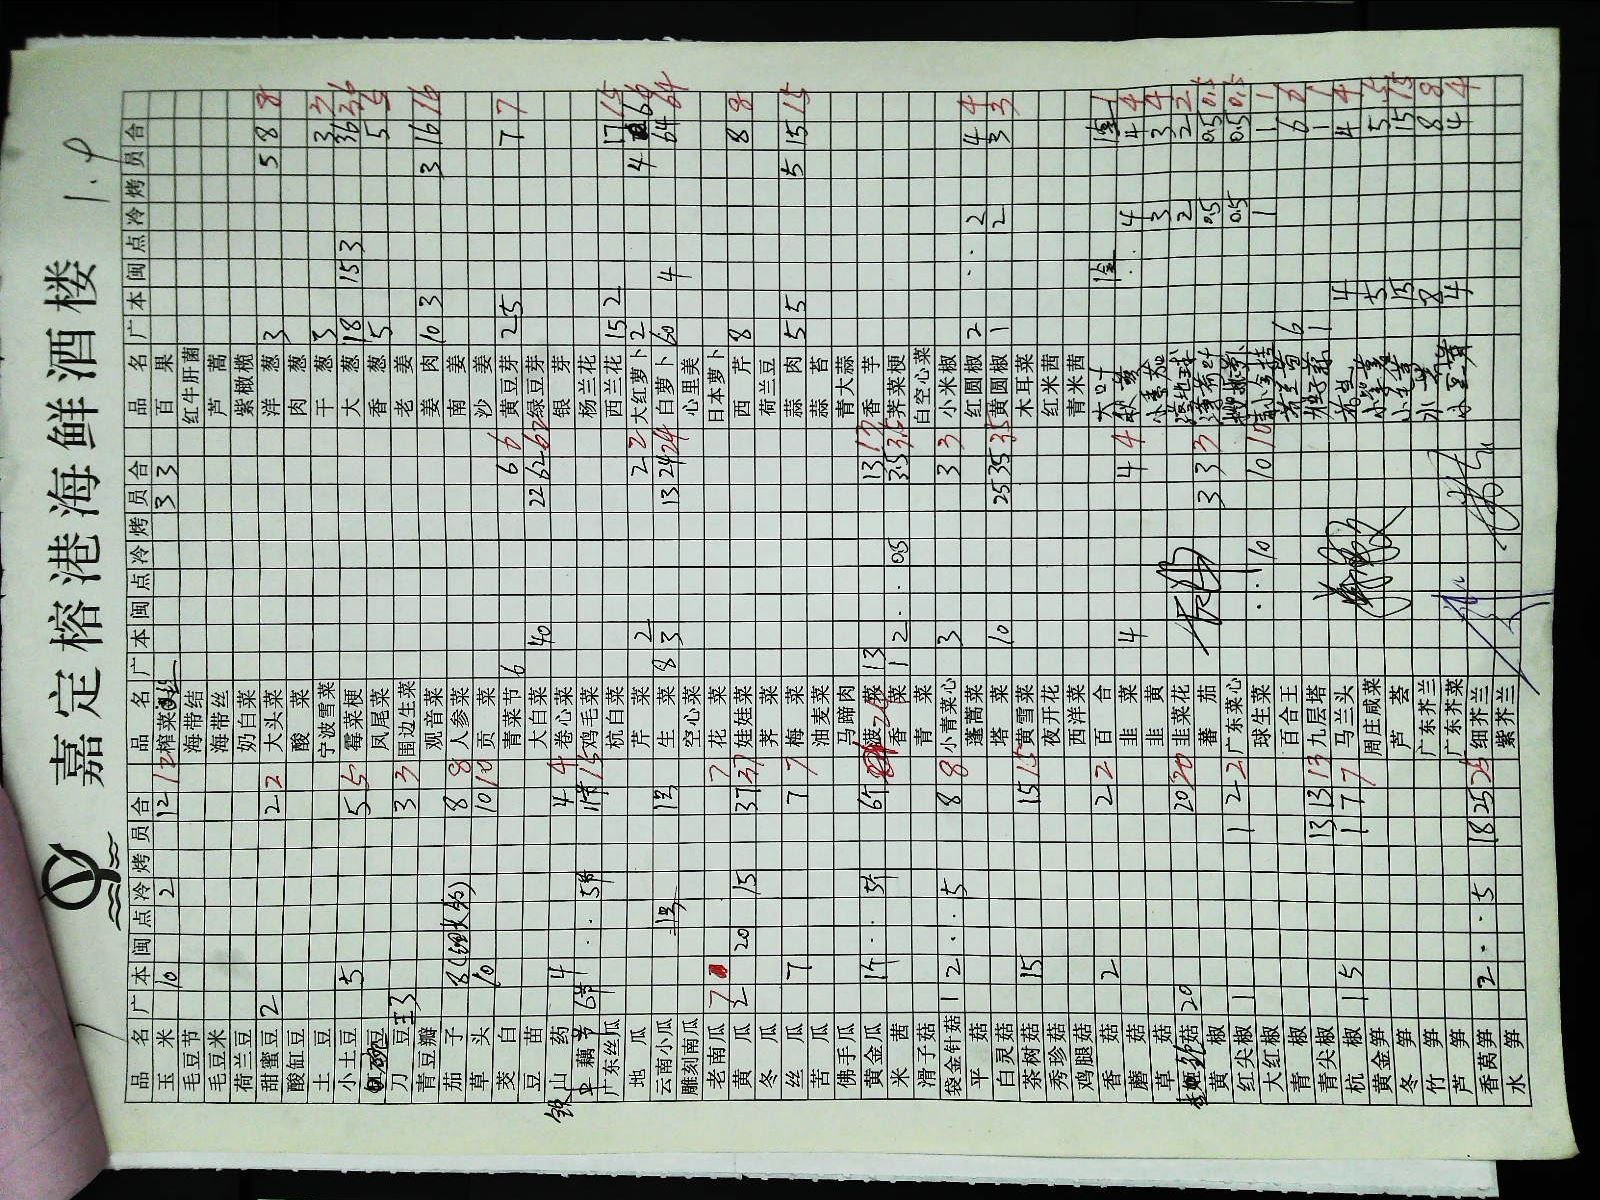 嘉定榕港海鲜酒楼 1.9
品名 广 本 闽 点 冷 烤 员 合 品名 广 本 闽 点 冷 烤 员 合 品名 广 本 闽 点 冷 烤 员 合
玉米 10 2 12 12 榨菜丝 3 3 百果
毛豆节 海带结 红牛肝菌
毛豆米 海带丝 芦蒿
荷兰豆 奶白菜 紫橄榄
甜蜜豆 2 2 2 大头菜 洋葱 3 5 8 8
酸缸豆 酸菜 肉葱
土豆 宁波雪菜 干葱 3 3 3
小土豆 5 5 5 霉菜梗 大葱 18 15 3 36 36
豆 凤尾菜 香葱 5 5 5
刀豆 3 3 3 围边生菜 老姜
青豆瓣 观音菜 姜肉 10 3 3 16 16
茄子 8 (细长的) 8 8 人参菜 南姜
草头 10 10 10 贡菜 沙姜
茭白 青菜节 6 6 6 黄豆芽 2 5 7 7
豆苗 大白菜 40 22 62 62 绿豆芽
铁山药 4 4 4 卷心菜 银芽
藕 6节 5节 11节 鸡毛菜 杨兰花
广东丝瓜 杭白菜 西兰花 15 2 17 15
地瓜 芹菜 2 2 2 大红萝卜 2 4 6 6
云南小瓜 生菜 8 3 13 24 24 白萝卜 60 4 64 64
雕刻南瓜 空心菜 心里美
老南瓜 7 7 花菜 日本萝卜
黄瓜 2 20 15 37 37 娃娃菜 西芹 8 8 8
冬瓜 荠菜 荷兰豆
丝瓜 7 7 7 梅菜 蒜肉 5 5 5 15 15
苦瓜 油麦菜 蒜苔
佛手瓜 马蹄肉 青大蒜
黄金瓜 菠菜 13 13 13 香芋
米茜 香菜 1 2 0.5 3.5 3.5 荠菜梗
滑子菇 青菜 白空心菜
袋金针菇 1 2 5 8 8 小青菜心 3 3 3 小米椒
平菇 蓬蒿菜 红圆椒 2 2 4 4
白灵菇 塔菜 10 25 35 35 黄圆椒 1 2 3 3
茶树菇 15 15 15 黄雪菜 木耳菜
秀珍菇 夜开花 红米茜
鸡腿菇 西洋菜 青米茜
香菇 2 2 2 百合
蘑菇 韭菜 4 4 4 4 4 4
草菇 韭黄 3 3 4
菇 20 20 20 韭菜花 2 2 2
黄椒 蕃茄 3 3 3 0.5 0.5 0.5
红尖椒 1 1 2 2 广东菜心 0.5 0.5 0.5
大红椒 球生菜 10 10 10 1 1 1
青椒 百合王 6 6 6
青尖椒 13 13 13 九层塔 1 1 1
杭椒 1 5 1 7 7 马兰头 4 4 4
黄金笋 周庄咸菜 5 5 5
冬笋 芦荟 15 15 15
竹笋 广东芥兰 8 8 8
芦笋 广东芥菜 4 4 4
香莴笋 2 5 18 25 25 细芥兰
水笋 紫芥兰